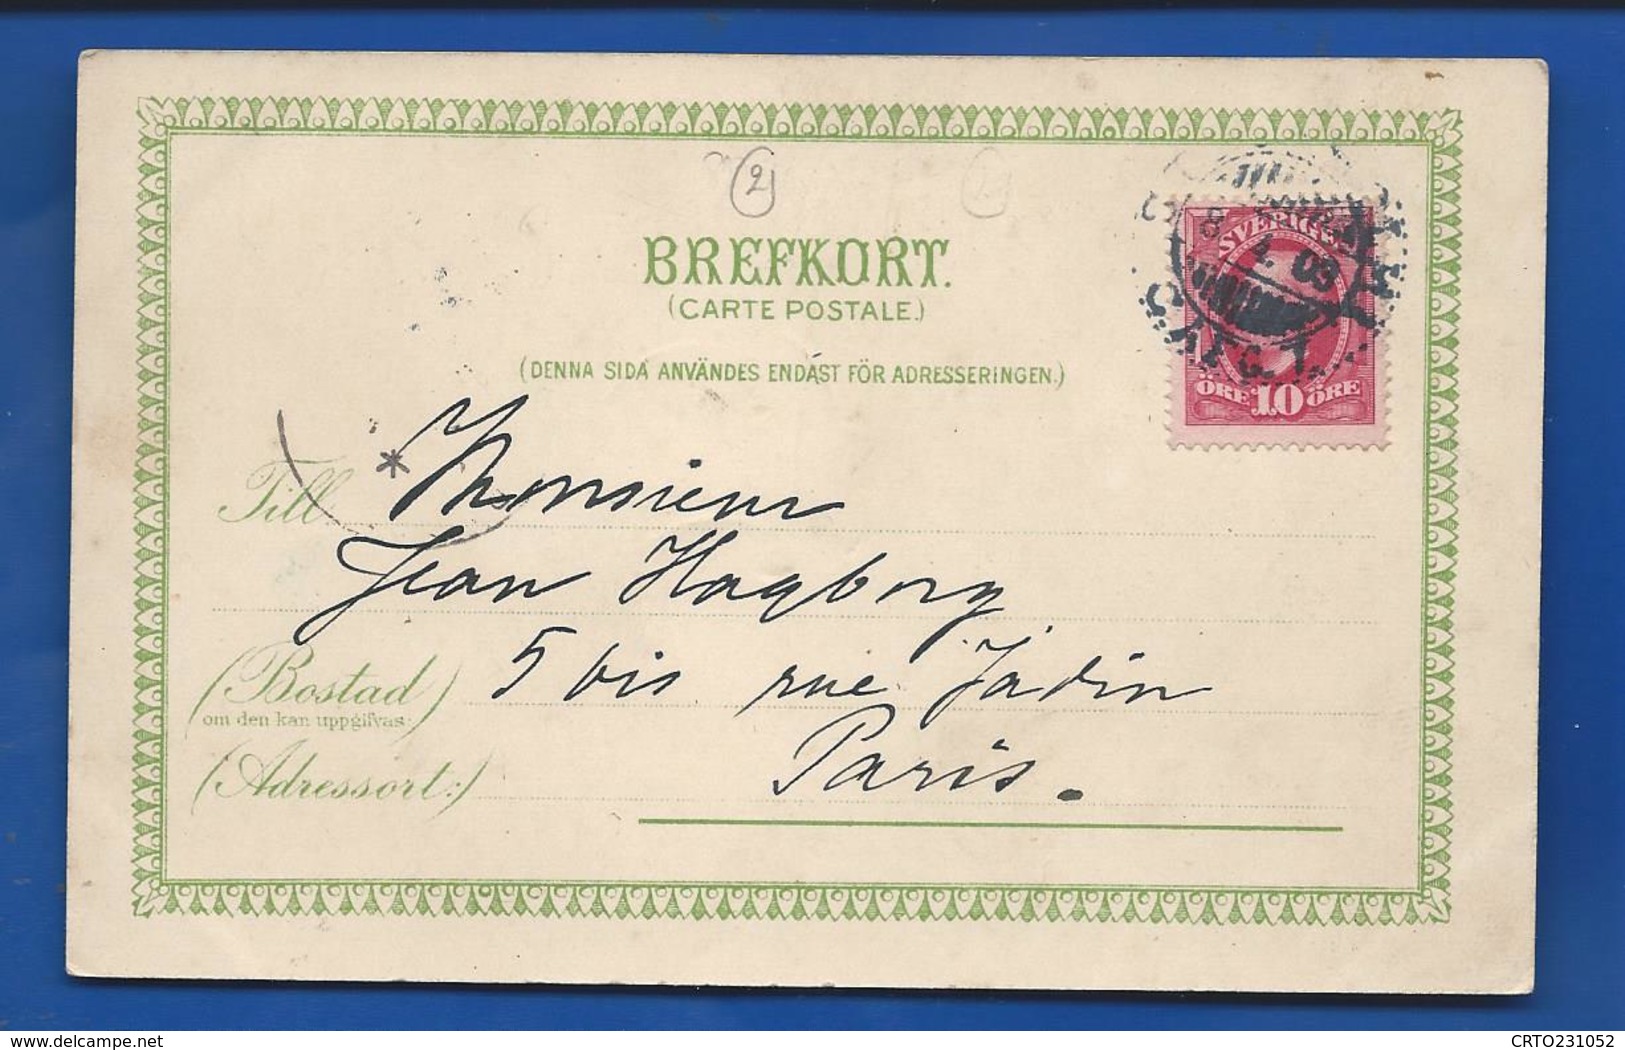 2
BREFKORT.
(CARTE POSTALE.)
(DENNA SIDA ANVÄNDES ENDAST FÖR ADRESSERINGEN.)
SVERIGE
8 03
ÖRE 10 ÖRE
Till
* Monsieur
Jean Hagborg
(Bostad)
om den kan uppgifvas:
5 bis rue Jadin
(Adressort:)
Paris.
delcampe.net
CRTO231052